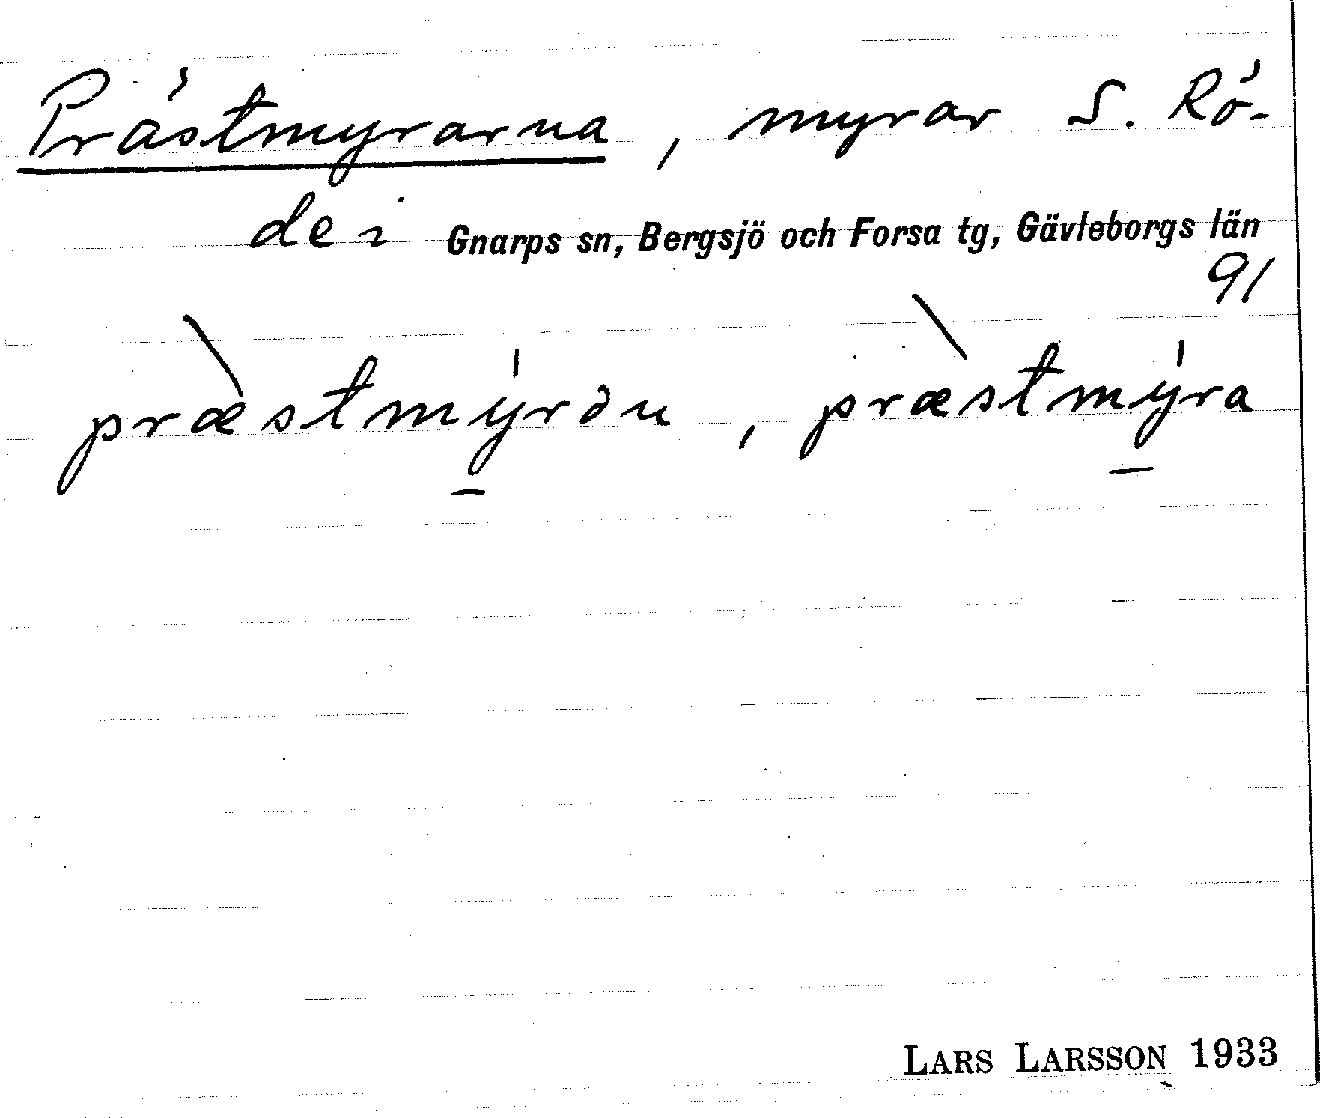 Prästmyrarna, myrar S. Rö-
de i Gnarps sn, Bergsjö och Forsa tg, Gävleborgs län
91
præ̀stmýrən, præ̀stmýra
LARS LARSSON 1933